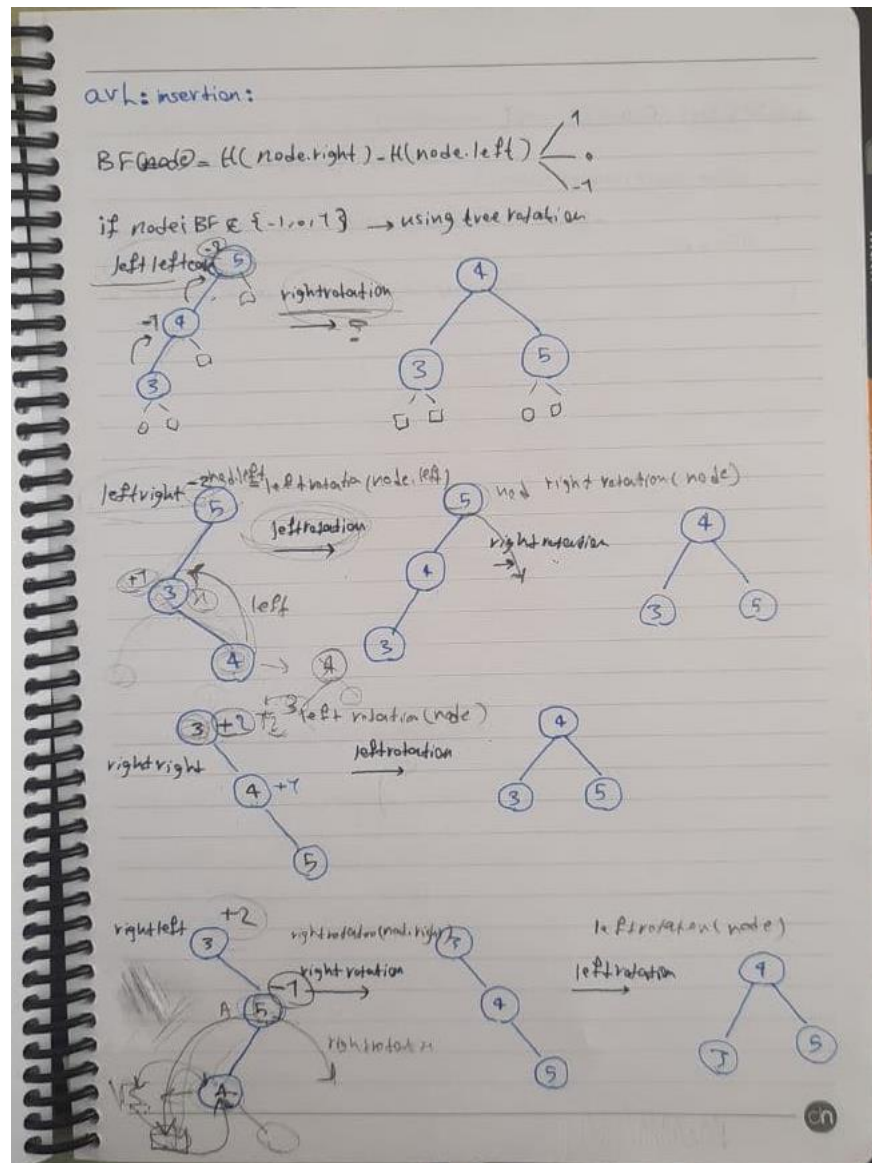 avl: insertion:
BF(node) = H(node.right) - H(node.left)
1
0
-1
if node i BF ∉ {-1, 0, 1} → using tree rotation
left left case
-2
5
-1
4
3
right rotation
→ ?
4
3
5
left right
-2
node.left = left rotation (node.left)
5
left rotation
+1
3
left
4
→ 4
5
nod right rotation (node)
right rotation
4
3
4
3
5
3
+2
left rotation (node)
right right
4
+1
5
left rotation
4
3
5
right left
+2
3
A
5
-1
right rotation (nod.right)
right rotation
4
3
4
5
left rotation (node)
left rotation
4
3
5
on